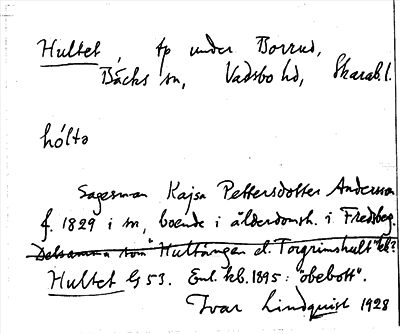 Hultet, tp under Borrud,
Bäcks sn, Vadsbo hd, Skarab. l.
hóltə
Sagesman Kajsa Pettersdotter Andersson
f. 1829 i sn, boende i ålderdomsh. i Fredsberg.
Detsamma som "Hultängen el. Torgrimshult" ek?
Hultet G 53. Enl. kb. 1895: "obebott".
Ivar Lindquist 1928